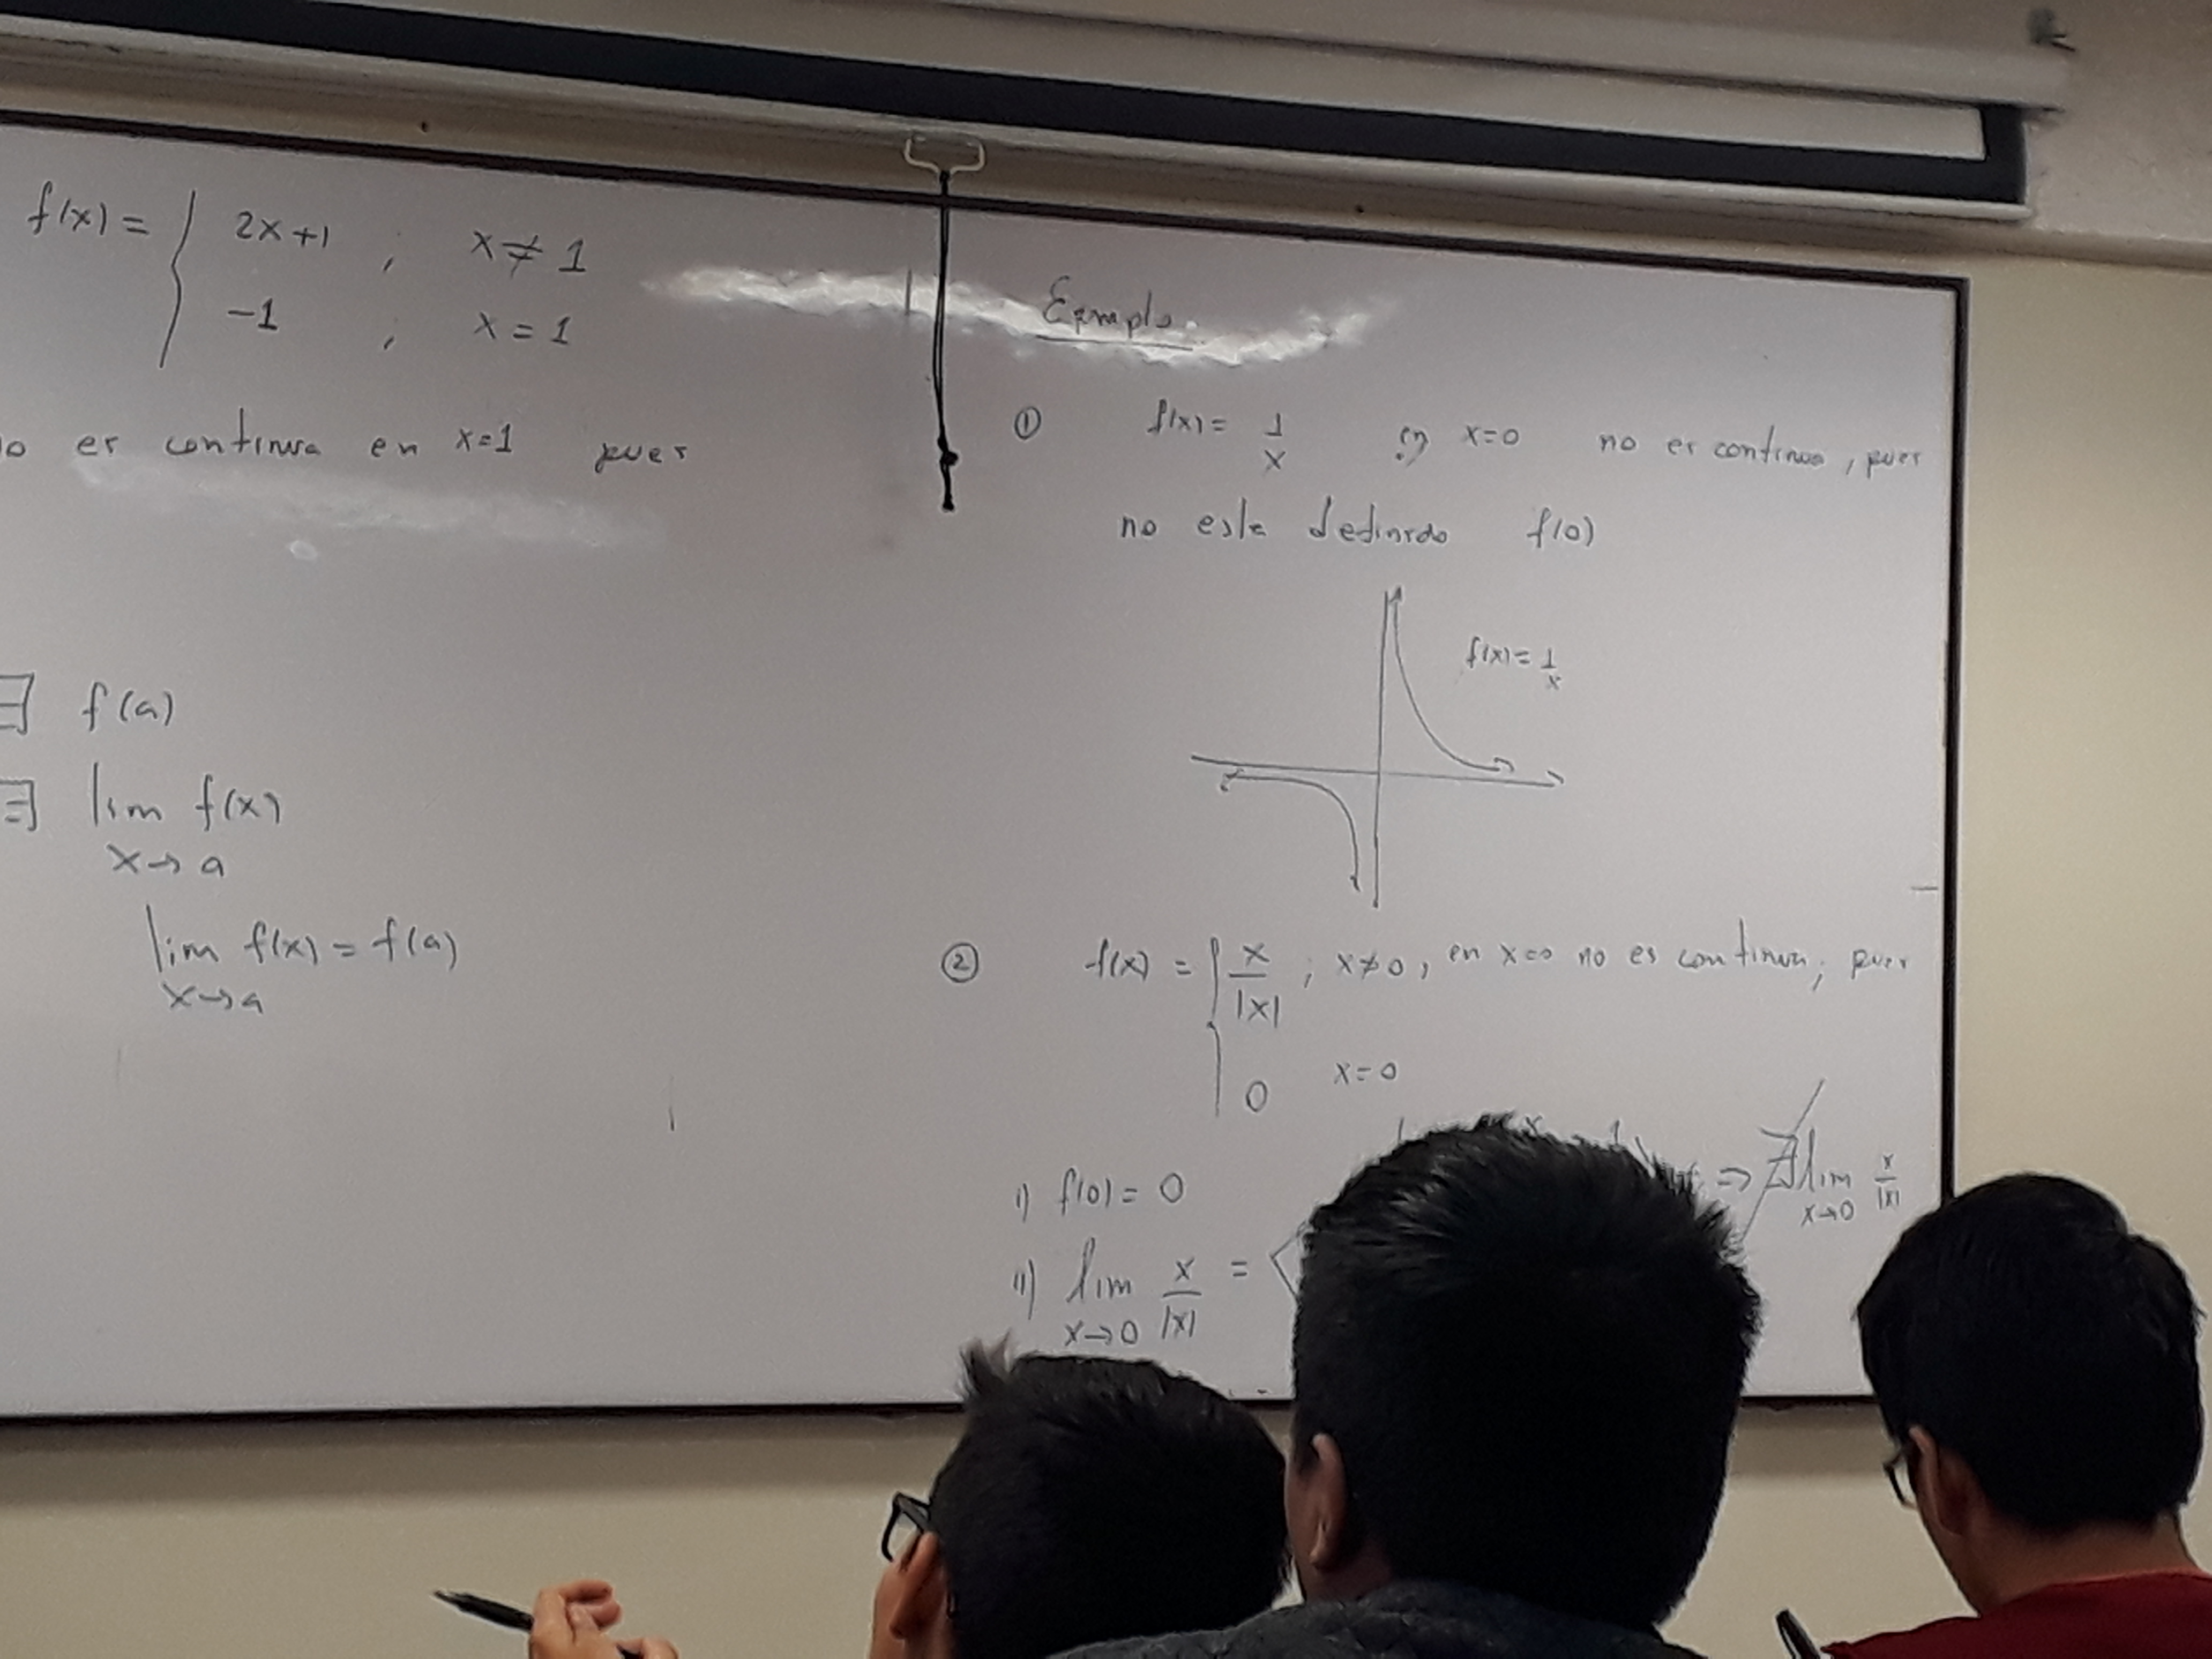 f(x) = { 2x+1 , x ≠ 1
-1 , x = 1
es continua en x=1 pues
∃ f(a)
∃ lim f(x)
x→a
lim f(x) = f(a)
x→a
Ejemplo.
① f(x) = 1/x en x=0 no es continua, pues
no esta definido f(0)
f(x) = 1/x
② f(x) = { x/|x| ; x≠0, en x=0 no es continua, pues
0 x=0
⇒ ∄ lim x/|x|
x→0
i) f(0) = 0
ii) lim x/|x| =
x→0